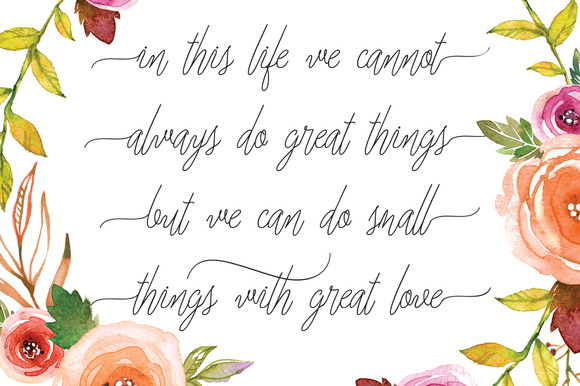 in this life we cannot
always do great things
but we can do small
things with great love